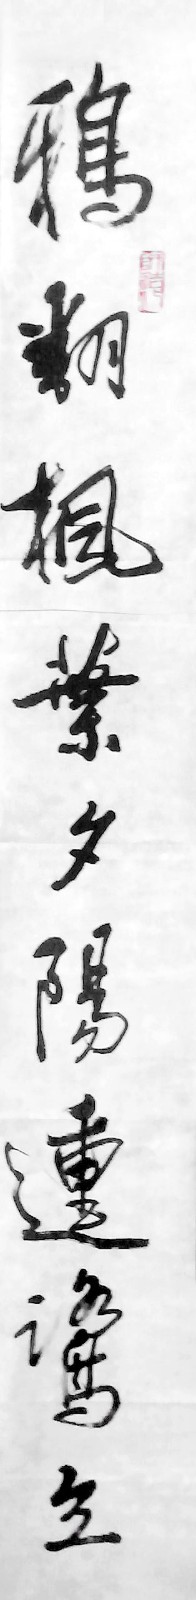 鴉翻楓葉夕陽動鷺立